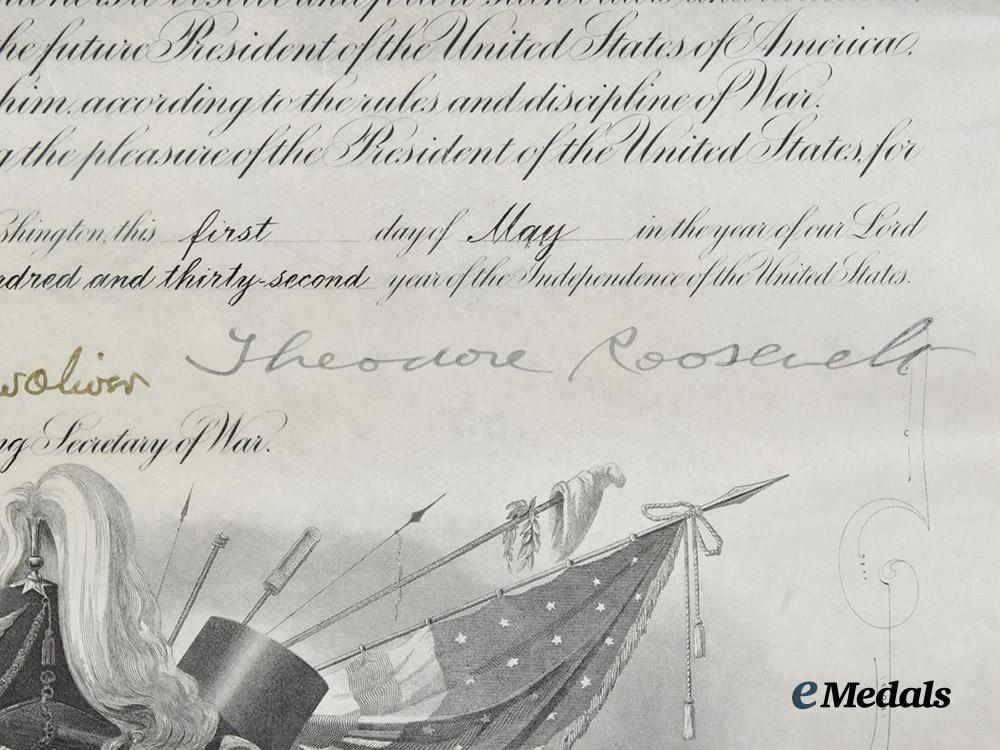 the future President of the United States of America,
him, according to the rules and discipline of War.
the pleasure of the President of the United States, for
this first day of May in the year of our Lord
and thirty-second year of the Independence of the United States.
Theodore Roosevelt
Oliver
Secretary of War.
eMedals